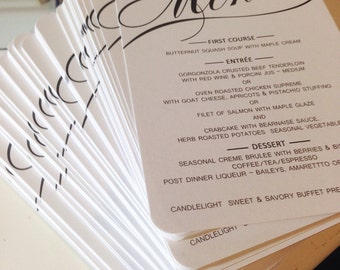 Menu
FIRST COURSE
BUTTERNUT SQUASH SOUP WITH MAPLE CREAM
ENTRÉE
GORGONZOLA CRUSTED BEEF TENDERLOIN
WITH RED WINE & PORCINI JUS – MEDIUM
OR
OVEN ROASTED CHICKEN SUPREME
WITH GOAT CHEESE, APRICOTS & PISTACHIO STUFFING
OR
FILET OF SALMON WITH MAPLE GLAZE
AND
CRABCAKE WITH BEARNAISE SAUCE,
HERB ROASTED POTATOES SEASONAL VEGETABLE
DESSERT
SEASONAL CREME BRULEE WITH BERRIES &
COFFEE/TEA/ESPRESSO
POST DINNER LIQUEUR – BAILEYS, AMARETTTO
CANDLELIGHT SWEET & SAVORY BUFFET
CANDLELIGHT SWEET &